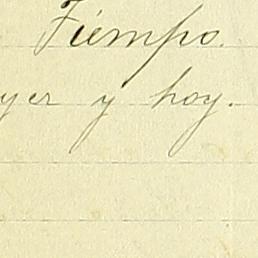 Tiempo.
yer y hoy.